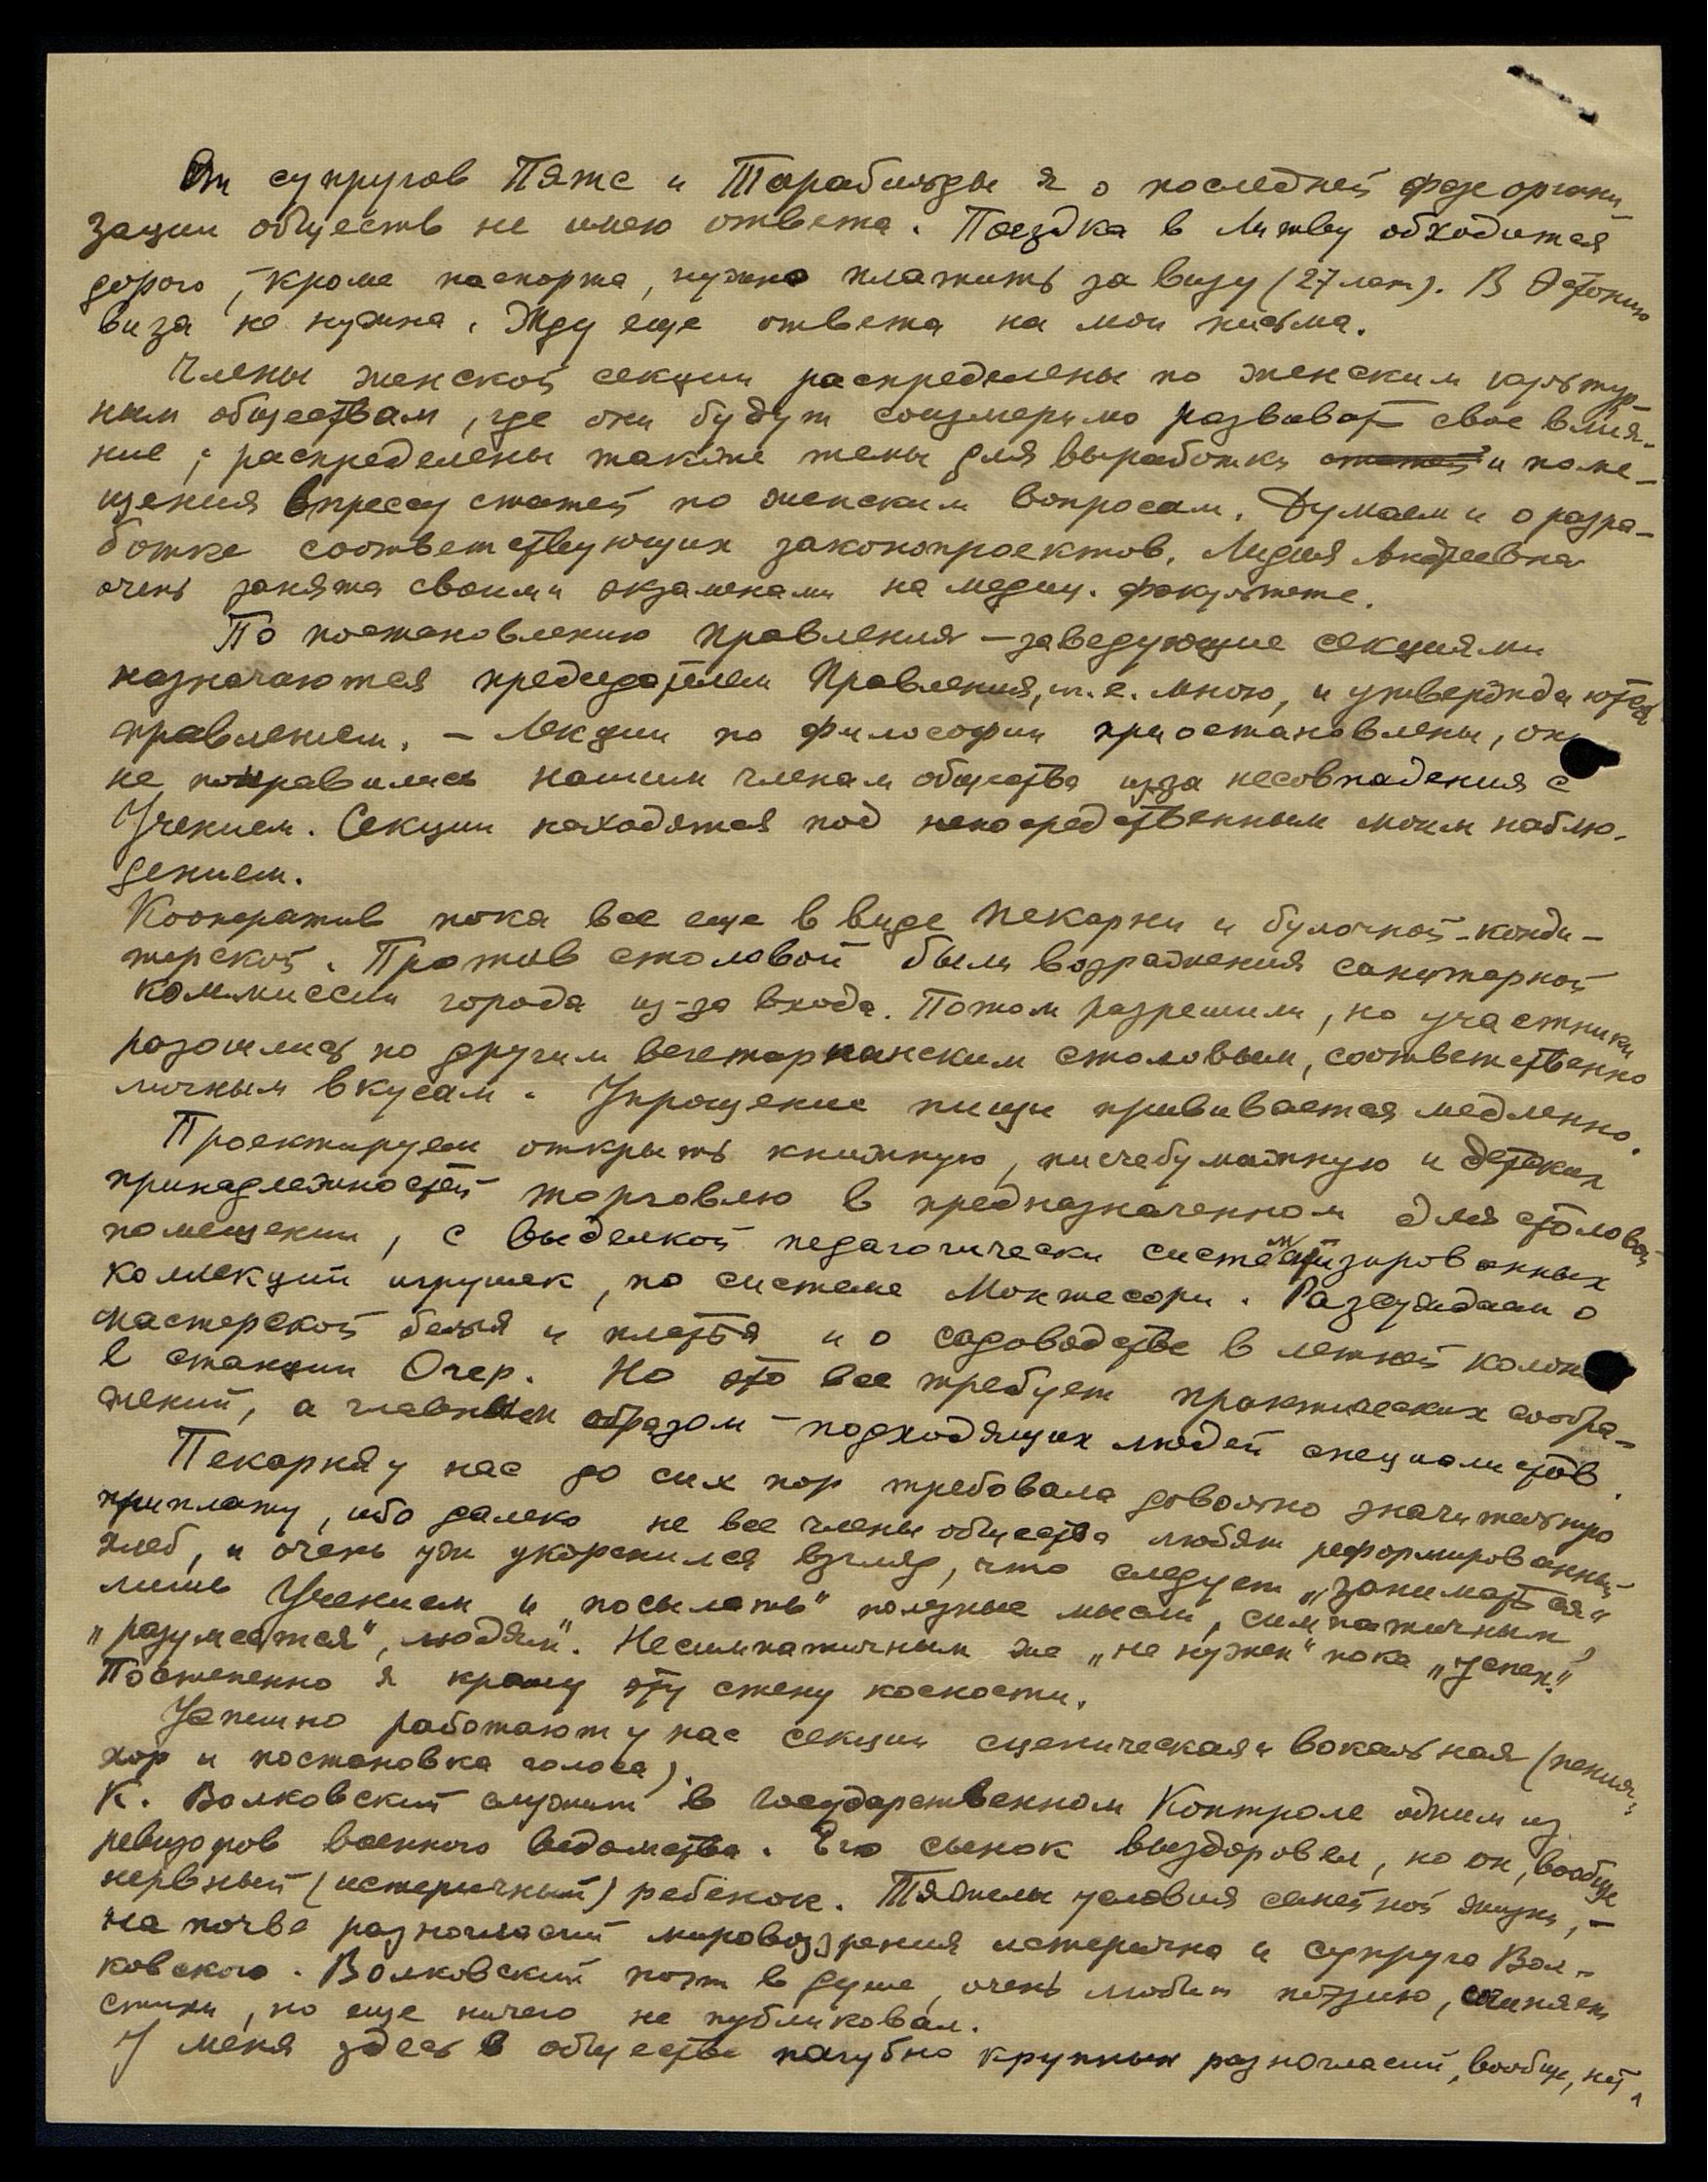 От супругов Пятс и Тарабильды я о последней фазе органи-
зации обществ не имею ответа. Поездка в Литву обходится
дорого, кроме паспорта, нужно платить за визу (27 лат). В Эстонию
виза не нужна. Жду еще ответа на мои письма.
Члены женской секции распределены по женским культур-
ным обществам, где они будут соизмеримо развивать свое влия-
ние; распределены также темы для выработки статей и поме-
щения в прессу статей по женским вопросам. Думаем и о разра-
ботке соответствующих законопроектов. Лидия Андреевна
очень занята своими экзаменами на медиц. факультете.
По постановлению Правления – заведующие секциями
назначаются председателем Правления, т.е. мною, и утверждаются
правлением. – Лекции по философии приостановлены, они
не понравились нашим членам общества из-за несовпадения с
Учением. Секции находятся под непосредственным моим наблю-
дением.
Кооператив пока все еще в виде пекарни и булочной-конди-
терской. Против столовой были возражения санитарной
коммиссии города из-за входа. Потом разрешили, но участники
разошлись по другим вегетарианским столовым, соответственно
личным вкусам. Упрощение пищи прививается медленно.
Проектируем открыть книжную, писчебумажную и детских
принадлежностей торговлю в предназначенном для столовой
помещении, с выделкой педагогически систематизированных
коллекций игрушек, по системе Монтесори. Разсуждаем о
мастерской белья и платья и о садоводстве в летней колонии
в станции Огер. Но это все требует практических сообра-
жений, а главным образом – подходящих людей специалистов.
Пекарня у нас до сих пор требовала довольно значительную
приплату, ибо далеко не все члены общества любят реформированный
хлеб, и очень уж укоренился взгляд, что следует „заниматься“
лишь Учением и „посылать“ полезные мысли, симпатичным,
„разумеется“, людям“. Несимпатичным же „не нужен“ пока „успех“.
Постепенно я крошу эту стену косности.
Успешно работают у нас секции сценическая и вокальная (пения,
хор и постановка голоса).
К. Волковский служит в Государственном Контроле одним из
ревизоров военного ведомства. Его сынок выздоровел, но он, вообще
нервный (истеричный) ребенок. Тяжелы условия семейной жизни, –
на почве разногласий мировоззрения истерична и супруга Вол-
ковского. Волковский поэт в душе, очень любит поэзию, сочиняет
стихи, но еще ничего не публиковал.
У меня здесь в обществе пагубно крупных разногласий, вообще, нет,